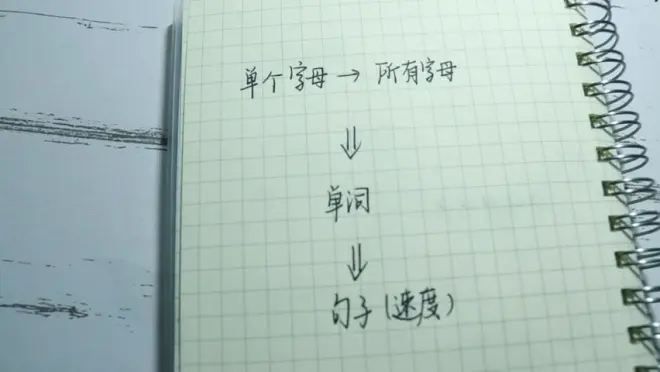 单个字母 → 所有字母
⇓
单词
⇓
句子(速度)